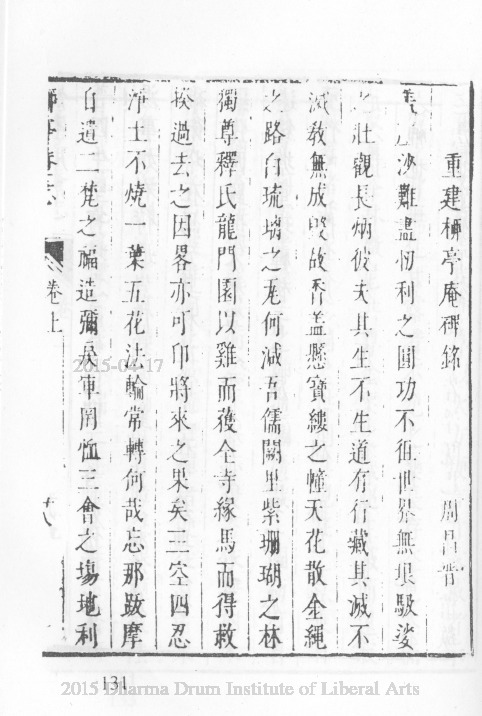 重建柳亭庵碑銘　周昌晉
沙難盡忉利之圓功不徂世界無垠駁娑
之壯觀長炳彼夫其生不生道有行藏其滅不
滅教無成毀故香蓋懸寶縷之幢天花散金繩
之路白琉璃之地何減吾儒闕里紫珊瑚之林
獨尊釋氏龍門園以雞而獲全寺緣馬而得敕
挨過去之因畧亦可印將來之果矣三空四忍
淨土不燒一葉五花法輪常轉何哉忘那跋摩
自遺二梵之福造彌戾車罔恤三會之塲地利
卷上
十八
2015-04-17
131
2015 Dharma Drum Institute of Liberal Arts